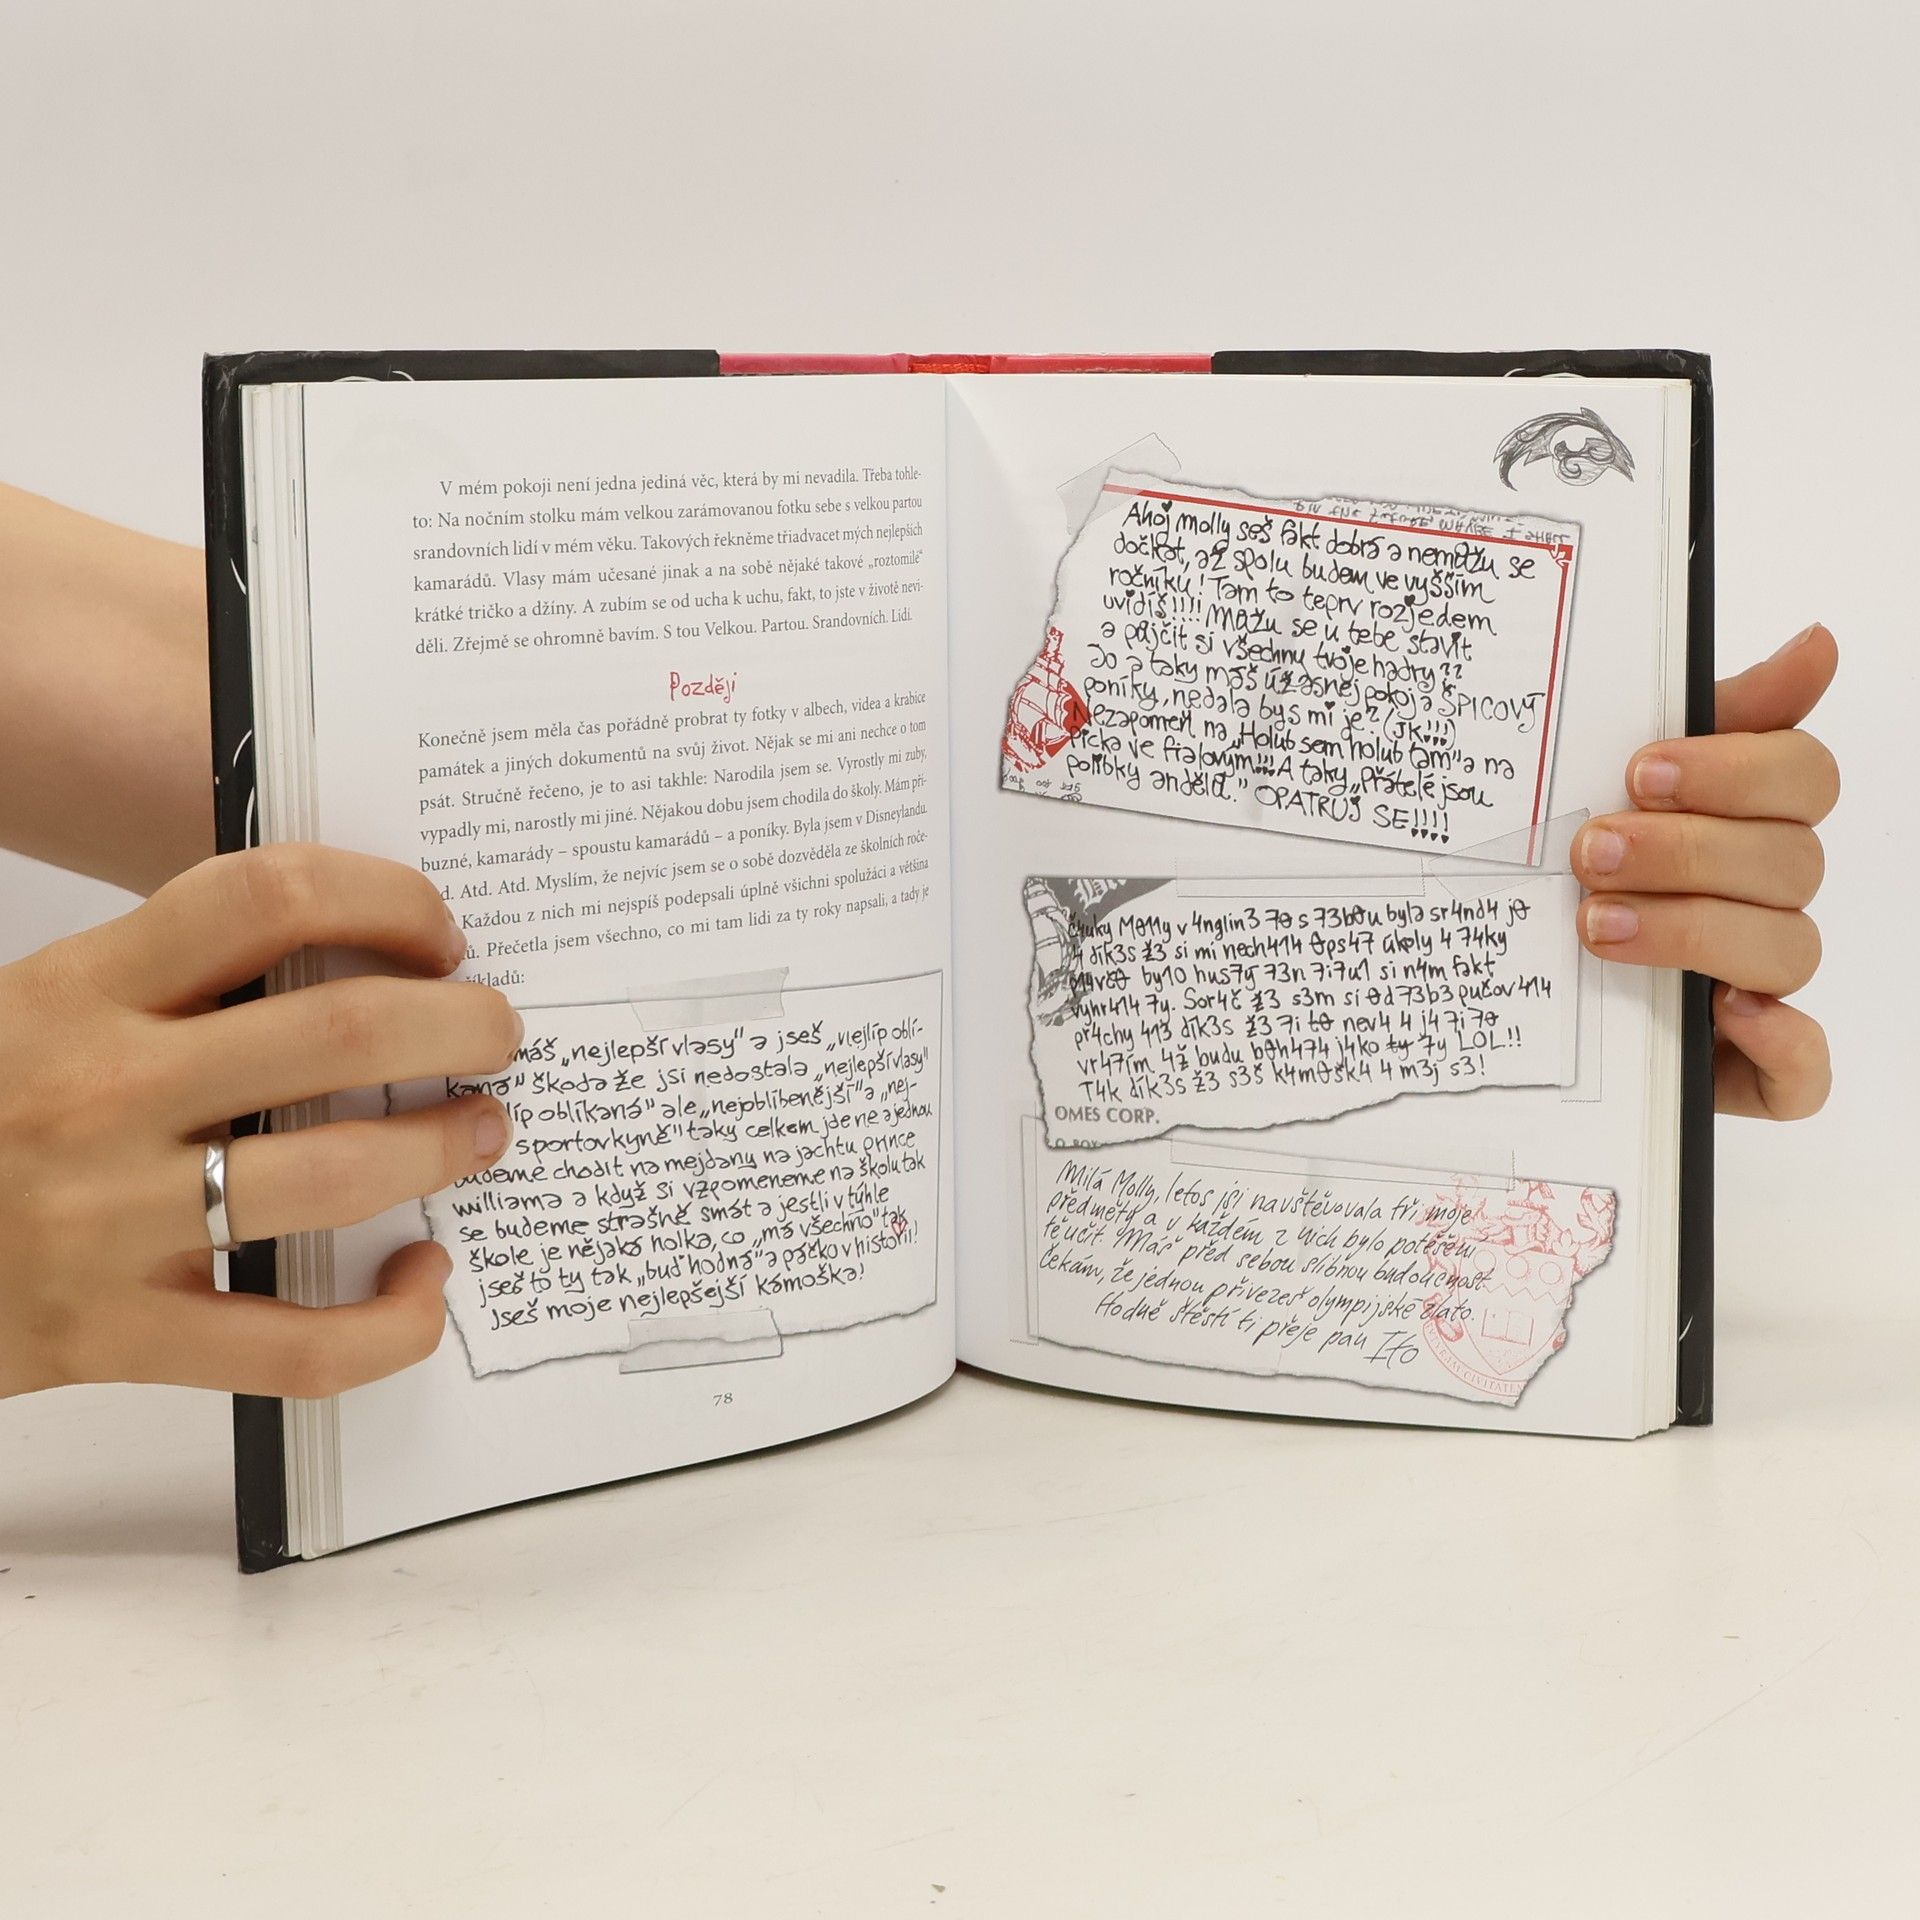 V mém pokoji není jedna jediná věc, která by mi nevadila. Třeba tohle-
to: Na nočním stolku mám velkou zarámovanou fotku sebe s velkou partou
srandovních lidí v mém věku. Takových řekněme třiadvacet mých nejlepších
kamarádů. Vlasy mám učesané jinak a na sobě nějaké takové „roztomilé“
krátké tričko a džíny. A zubím se od ucha k uchu, fakt, to jste v životě nevi-
děli. Zřejmě se ohromně bavím. S tou Velkou. Partou. Srandovních. Lidí.
Později
Konečně jsem měla čas pořádně probrat ty fotky v albech, videa a krabice
památek a jiných dokumentů na svůj život. Nějak se mi ani nechce o tom
psát. Stručně řečeno, je to asi takhle: Narodila jsem se. Vyrostly mi zuby,
vypadly mi, narostly mi jiné. Nějakou dobu jsem chodila do školy. Mám pří-
buzné, kamarády – spoustu kamarádů – a poníky. Byla jsem v Disneylandu.
d. Atd. Atd. Myslím, že nejvíc jsem se o sobě dozvěděla ze školních roče-
Každou z nich mi nejspíš podepsali úplně všichni spolužáci a většina
ů. Přečetla jsem všechno, co mi tam lidi za ty roky napsali, a tady je
íkladů:
máš „nejlepší vlasy“ a jseš „nejlíp oblí-
kaná“ škoda že jsi nedostala „nejlepší vlasy“
líp oblíkaná“ ale „nejoblíbenější“ a „nej-
sportovkyně“ taky celkem jde ne a jednou
budeme chodit na mejdany na jachtu prince
williama a když si vzpomeneme na školu tak
se budeme strašně smát a jestli v týhle
škole je nějaká holka, co „má všechno“ tak
jseš to ty tak „buď hodná“ a páčko v historii!
Jseš moje nejlepšejší kámoška!
78
Ahoj molly seš fakt dobrá a nemůžu se
dočkat, až spolu budem ve vyšším
ročníku! Tam to teprv rozjedem
uvidíš!!!! Můžu se u tebe stavit
a půjčit si všechny tvoje hadry??
Jo a taky máš úžasnej pokoj a ŠPICOVÝ
poníky, nedala bys mi je? (JK!!!)
Nezapomeň na „Holub sem holub tam“ a na
Picka ve fialovým!!! A taky „Přátelé jsou
polibky andělů.“ OPATRUJ SE!!!!
č4uky M0lly v 4nglin3 70 s 73b0u byla sr4nd4 j0
4 dík3s ž3 si mi nech414 0ps47 úkoly 4 74ky
by10 hus7y 73n 7i7ul si n4m f4kt
vyhr414 7y. Sor4č ž3 s3m si 0d 73b3 pučov414
pr4chy 413 dík3s ž3 7i to nev4 4 j4 7i 70
vr47ím 4ž budu b0h474 j4ko ty 7y LOL!!
T4k dík3s ž3 s3š k4m0šk4 4 m3j s3!
OMES CORP.
Milá Molly, letos jsi navštěvovala tři moje
předměty a v každém z nich bylo potěšení
tě učit. Máš před sebou slibnou budoucnost.
Čekám, že jednou přivezeš olympijské zlato.
Hodně štěstí ti přeje pan Ito